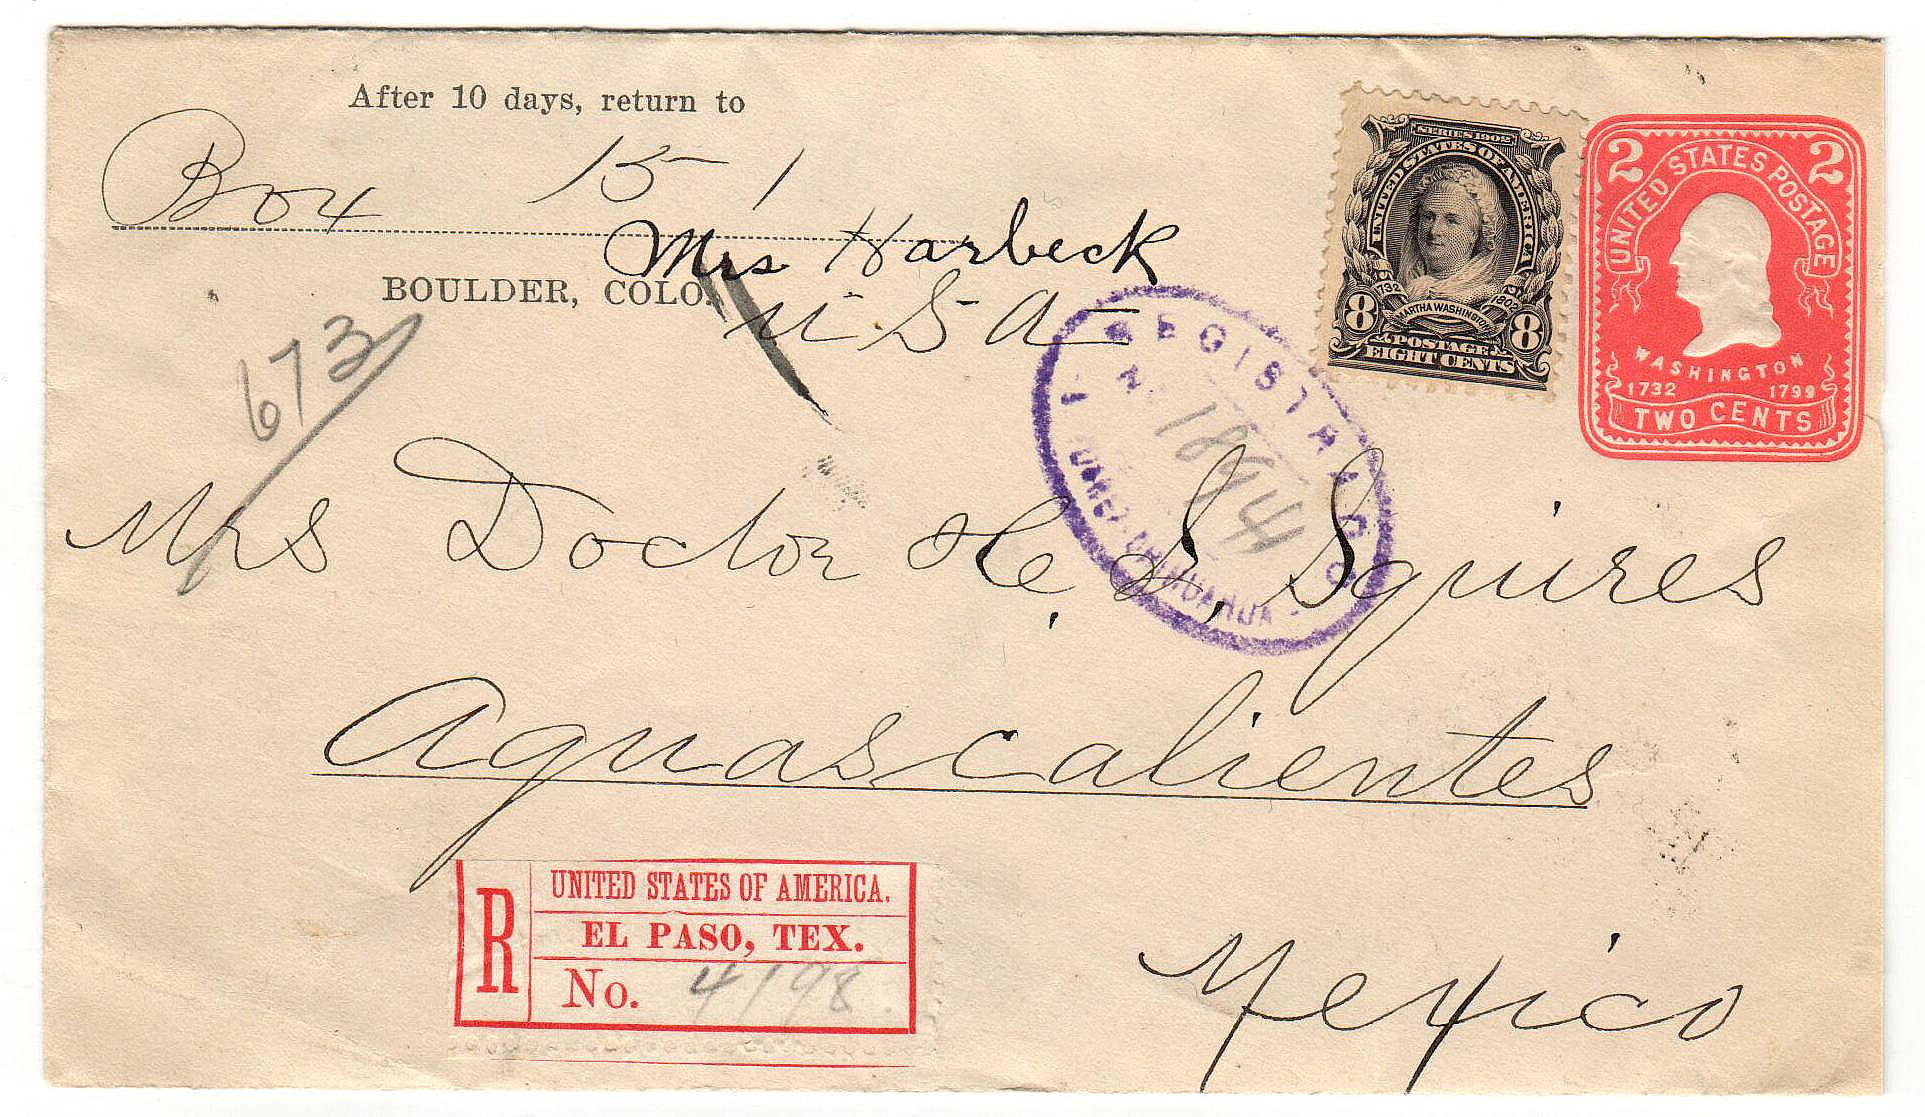 After 10 days, return to
Box 151
Mrs Harbeck
BOULDER, COLO.
U S A
673
SERIES 1902
UNITED STATES OF AMERICA
1732 1802
MARTHA WASHINGTON
8 8
POSTAGE
EIGHT CENTS
2 2
UNITED STATES POSTAGE
WASHINGTON
1732 1799
TWO CENTS
REGISTRADO
No. 18941
JUAREZ CHIHUAHUA
Mrs Doctor H. S. Squires
Aguascalientes
Mexico
R
UNITED STATES OF AMERICA.
EL PASO, TEX.
No. 4198